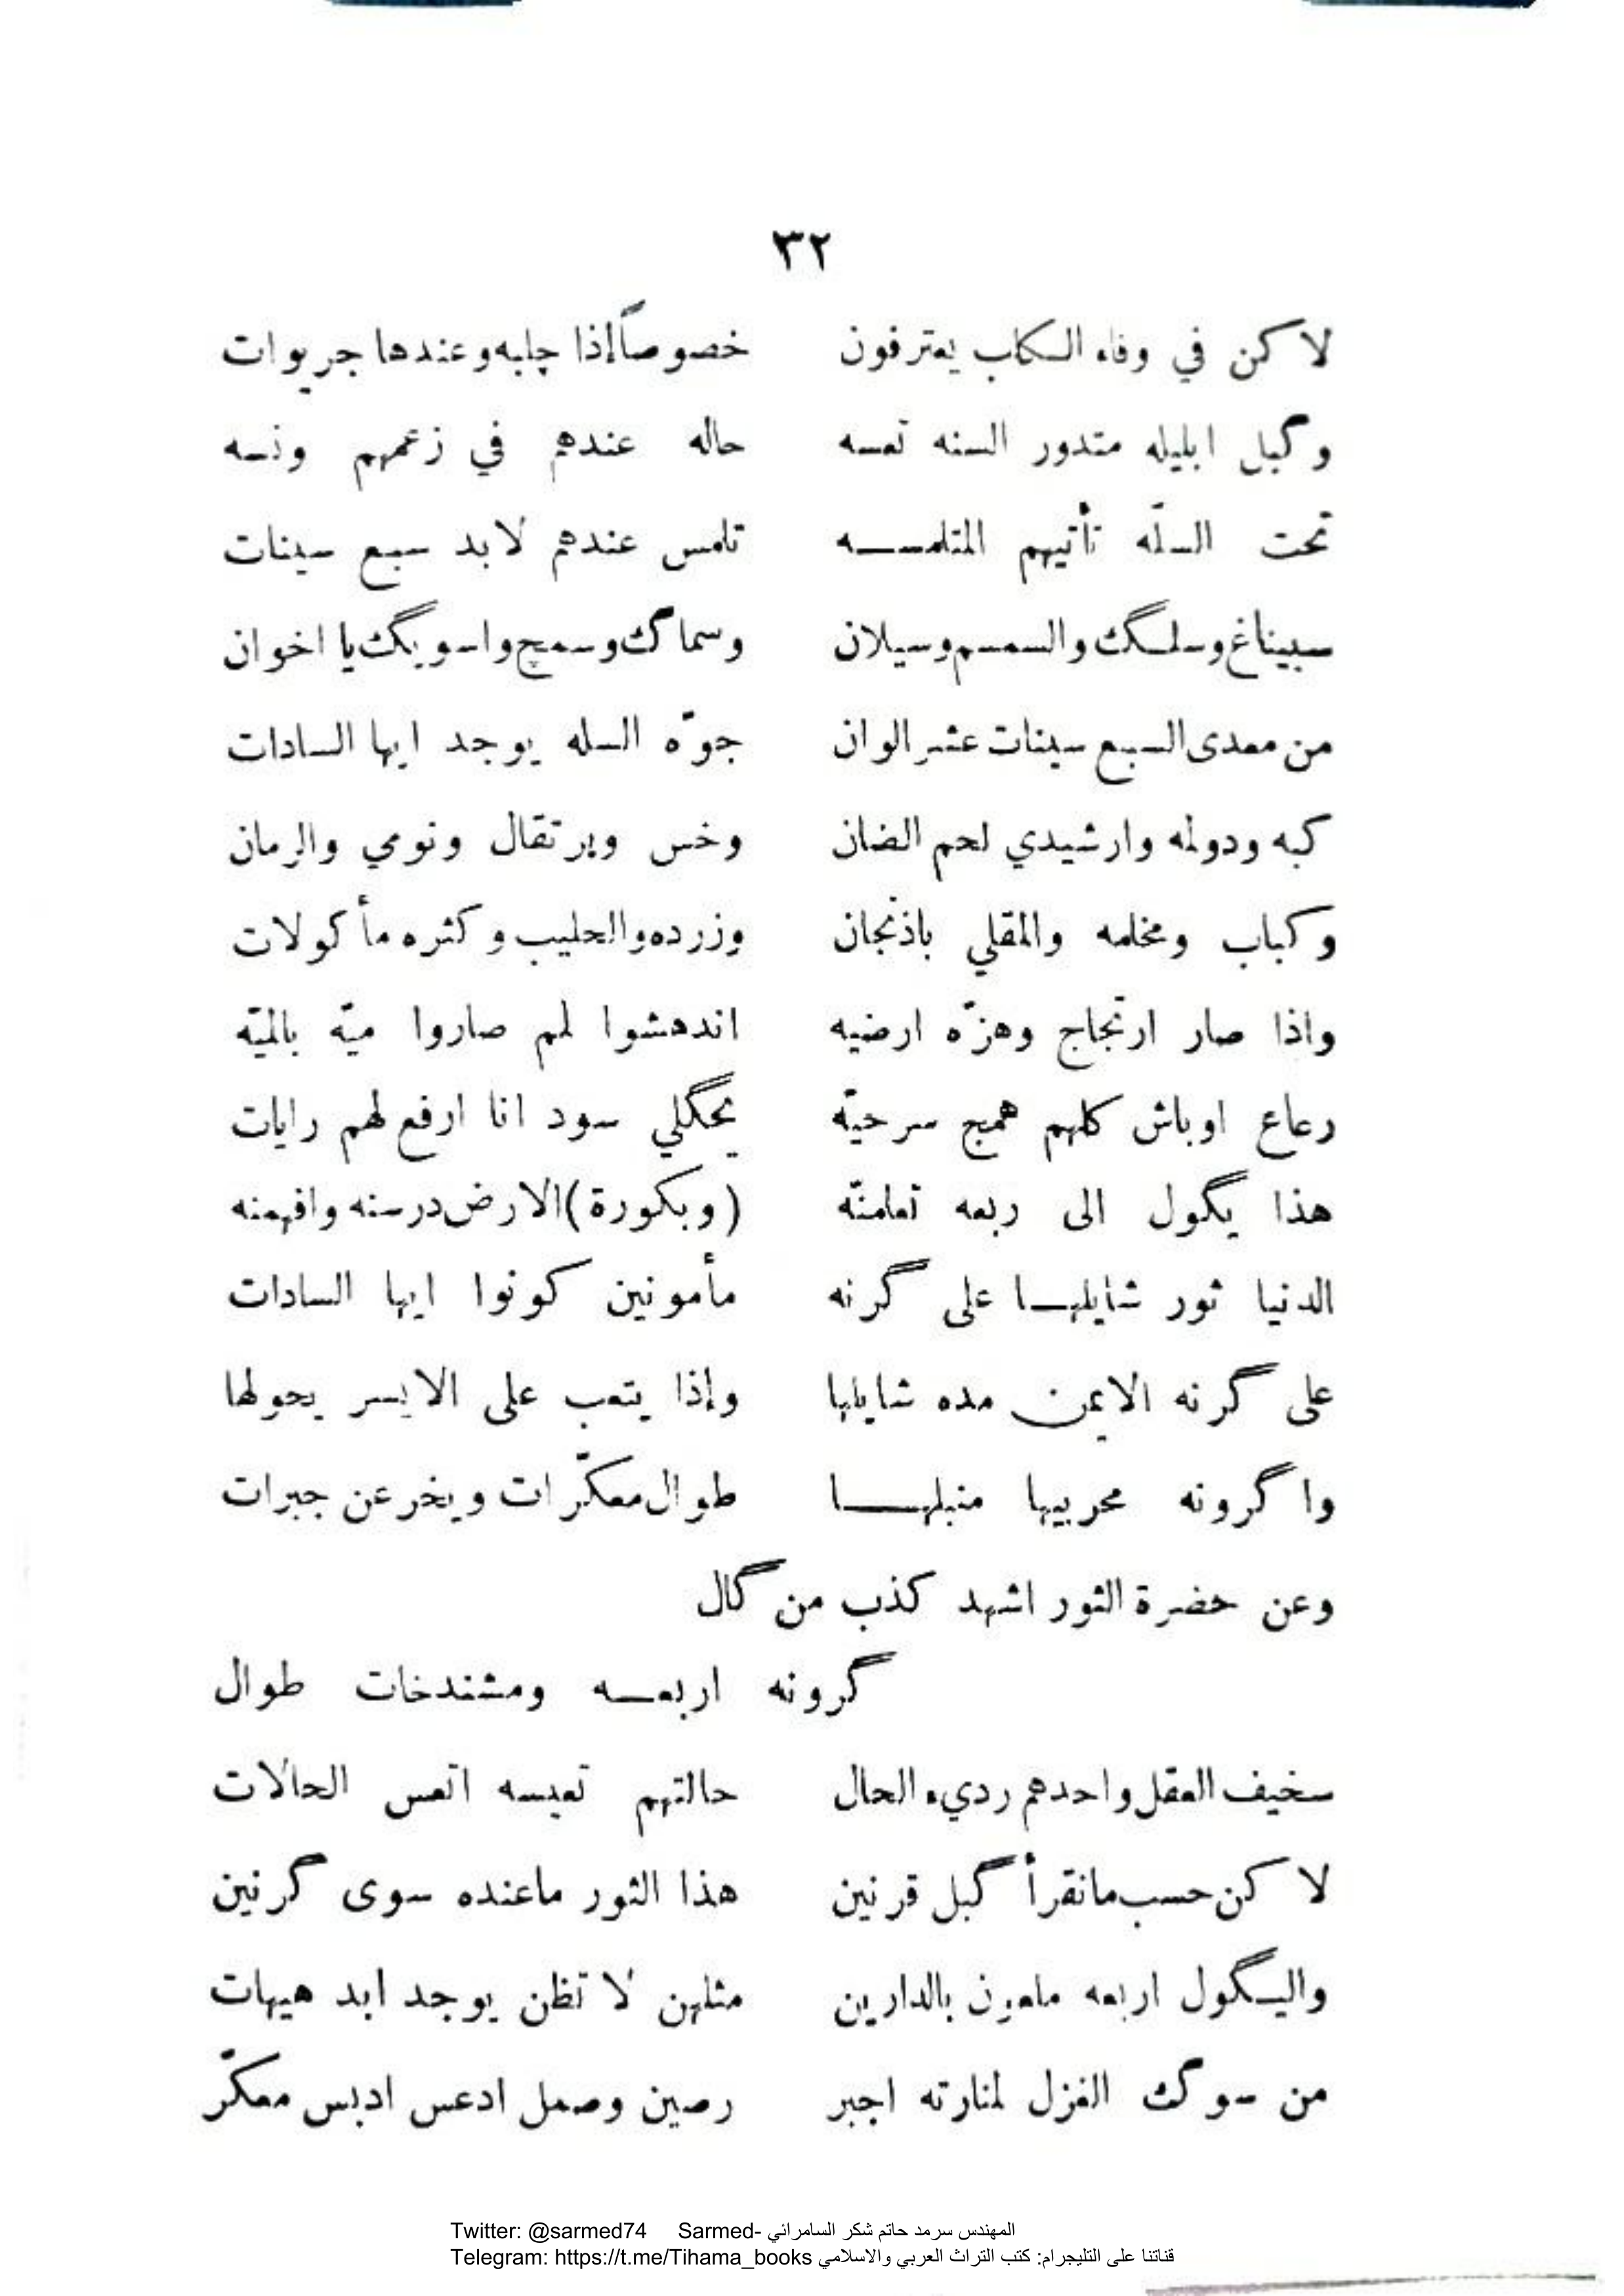 ٣٢
لاكن في وفاء الكلب يعترفون خصوصاً إذا چلبه وعندها جريوات
وگبل ابليله متدور السنه تعسه حاله عندهم في زعمهم ونسه
تحت السلّه تأتيهم المتلمسه تلمس عندهم لابد سبع سينات
سبيناغ وسلگ والسمسم وسيلان وسماگ وسمچ واسويگ يا اخوان
من معدى السبع سينات عشر الوان جوّه السله يوجد ايها السادات
كبه ودولمه وارشيدي لحم الضان وخس وبرتقال ونومي والرمان
وكباب ومخلمه والمقلي باذنجان وزرده والحليب وكثره مأكولات
واذا صار ارتجاج وهزّه ارضيه اندهشوا لمم صاروا ميّه بالميّه
رعاع اوباش كلهم همج سرحيّه يحگلي سود انا ارفع لهم رايات
هذا يگول الى ربعه تعلمنّه (وبكورة) الارض درسنه وافهمنه
الدنيا ثور شايلها على گرنه مأمونين كونوا ايها السادات
على گرنه الايمن مده شايلها وإذا يتعب على الايسر يحولها
واگرونه محربيها منبلها طوال معكّرات ويخرعن جبرات
وعن حضرة الثور اشهد كذب من گال
گرونه اربعه ومشندخات طوال
سخيف العقل واحدهم رديء الحال حالتهم تعيسه اتعس الحالات
لاكن حسب مانقرأ گبل قرنين هذا الثور ماعنده سوى گرنين
واليگول اربعه ملعون بالدارين مثلهن لا تظن يوجد ابد هيهات
من سوگ الغزل لمنارته اجبر رصين وصمل ادعس ادبس معكّر
Twitter: @sarmed74 Sarmed- المهندس سرمد حاتم شكر السامرائي
Telegram: https://t.me/Tihama_books قناتنا على التليجرام: كتب التراث العربي والاسلامي